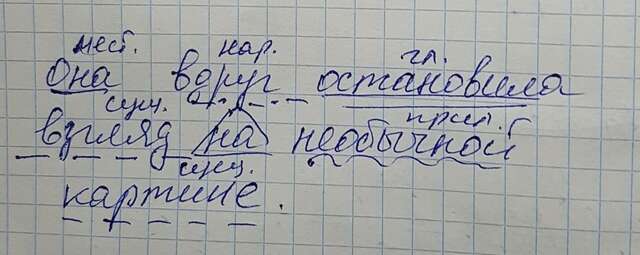 мест. нар. гл.
Она вдруг остановила
сущ. прил.
взгляд на необычной
сущ.
картине.